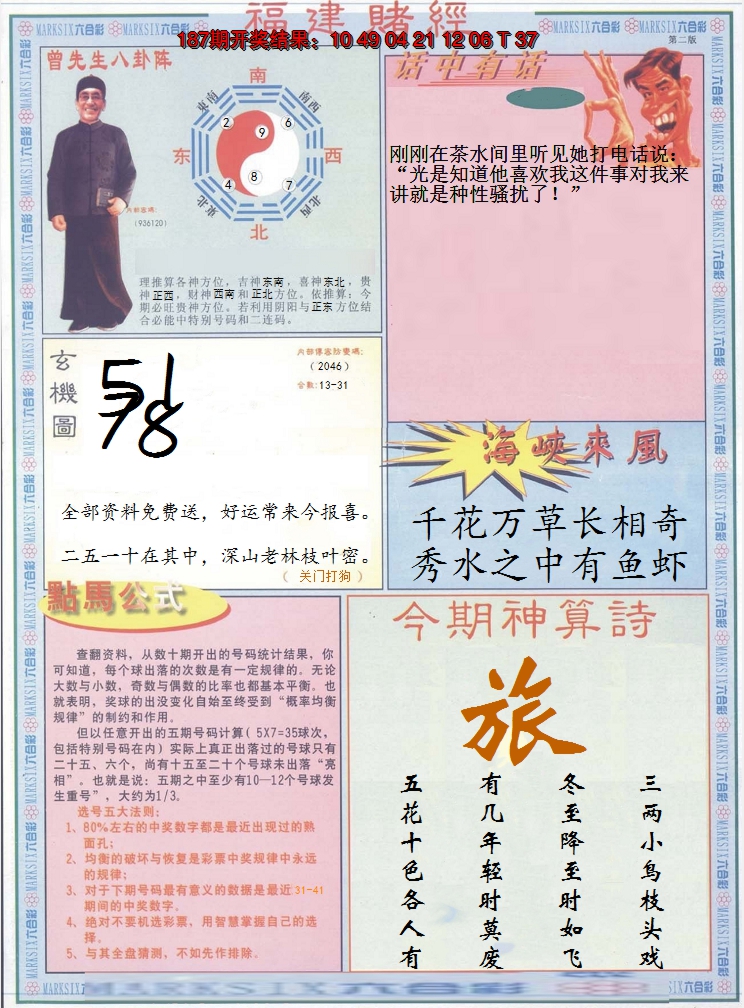 福建賭經
187期开奖结果: 10 49 04 21 12 06 T 37
第二版
MARKSIX六合彩
曾先生八卦阵
南
東南
南西
2
9
6
东
西
4
8
7
東北
北西
北
(936120)
理推算各神方位，吉神东南，喜神东北，贵
神正西，财神西南和正北方位。依推算：今
期必旺贵神方位。若利用阴阳与正东方位结
合必能中特别号码和二连码。
话中有话
刚刚在茶水间里听见她打电话说：
“光是知道他喜欢我这件事对我来
讲就是种性骚扰了！”
玄機圖
51
78
(2046)
合数:13-31
全部资料免费送，好运常来今报喜。
二五一十在其中，深山老林枝叶密。
（ 关门打狗 ）
海峡來風
千花万草长相奇
秀水之中有鱼虾
點馬公式
查翻资料，从数十期开出的号码统计结果，你
可知道，每个球出落的次数是有一定规律的。无论
大数与小数，奇数与偶数的比率也都基本平衡。也
就表明，奖球的出没变化自始至终受到“概率均衡
规律”的制约和作用。
但以任意开出的五期号码计算( 5X7=35球次，
包括特别号码在内) 实际上真正出落过的号球只有
二十五、六个，尚有十五至二十个号球未出落“亮
相”。也就是说：五期之中至少有10—12个号球发
生重号”，大约为1/3。
选号五大法则:
1、80%左右的中奖数字都是最近出现过的熟
面孔；
2、均衡的破坏与恢复是彩票中奖规律中永远
的规律；
3、对于下期号码最有意义的数据是最近31-41
期间的中奖数字。
4、绝对不要机选彩票，用智慧掌握自己的选
择。
5、与其全盘猜测，不如先作排除。
今期神算詩
旅
三两小鸟枝头戏
冬至降至时如飞
有几年轻时莫废
五花十色各人有